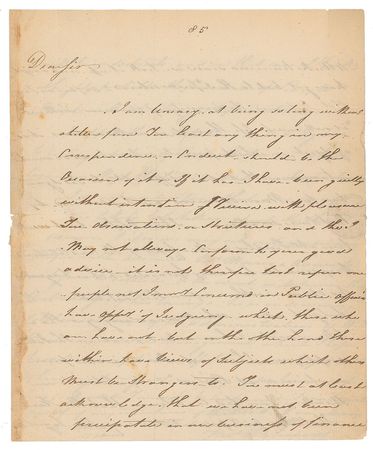 85
Dear Sir
I am uneasy at being so long without
a letter from You least any thing in my
Correspondence or Conduct should be the
Occasion of it. If it has I have been guilty
without intention I receive with pleasure
Your observations or Strictures and tho I
May not always Conform to your good
advice it is not therefore lost upon me
people not Concerned in Public Affairs
have of Judging which those who
are have not but on the other hand those
within have Views of Subjects which others
Must be Strangers to. You must at least
acknowledge that we have not been
precipitate in our business of Finance